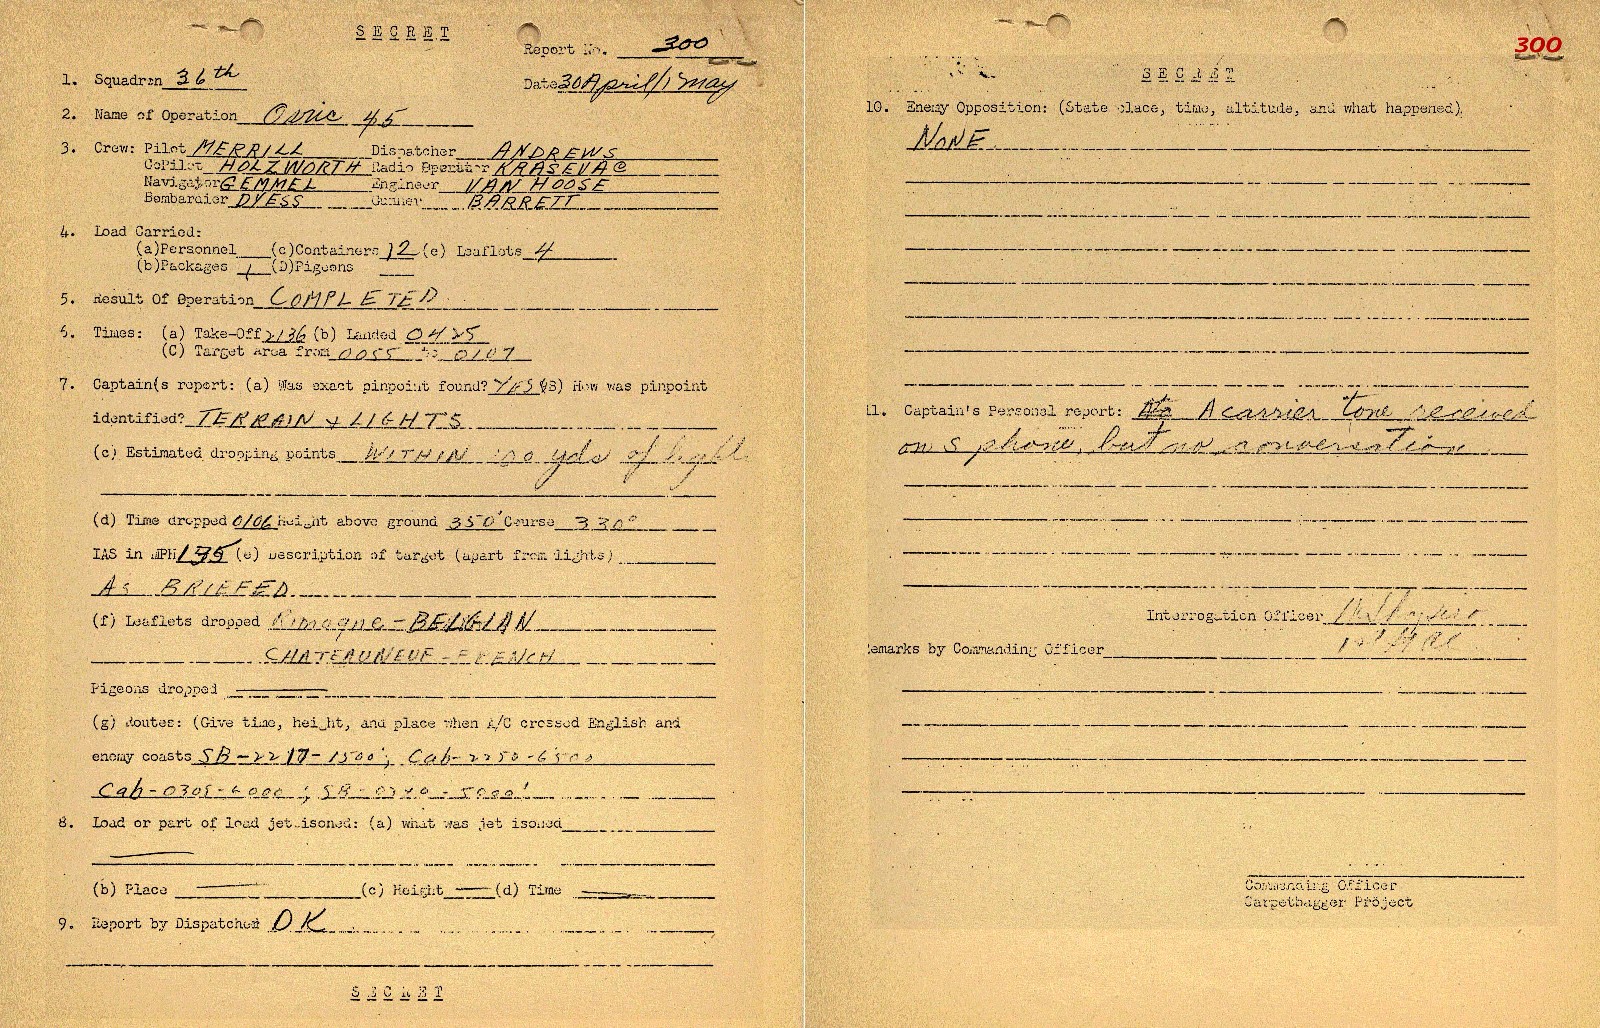 SECRET
Report No. 300
1. Squadron 36th Date 30 April/1 May
2. Name of Operation Osric 45
3. Crew: Pilot MERRILL Dispatcher ANDREWS
CoPilot HOLZWORTH Radio Operator KRASEVAC
Navigator GEMMEL Engineer VAN HOOSE
Bombardier DYESS Gunner BARRETT
4. Load Carried:
(a)Personnel (c)Containers 12 (e) Leaflets 4
(b)Packages (D)Pigeons
5. Result Of Operation COMPLETED
6. Times: (a) Take-Off 2136 (b) Landed 0425
(C) Target Area from 0055 to 0107
7. Captain(s report: (a) Was exact pinpoint found? YES (B) How was pinpoint
identified? TERRAIN + LIGHTS
(c) Estimated dropping points WITHIN 100 yds of lights
(d) Time dropped 0106 Height above ground 350' Course 330°
IAS in MPH 135 (e) Description of target (apart from lights)
AS BRIEFED
(f) Leaflets dropped Rimogne - BELGIAN
CHATEAUNEUF - FRENCH
Pigeons dropped
(g) Routes: (Give time, height, and place when A/C crossed English and
enemy coasts SB-2217-1500'; Cab-2250-6500
Cab-0305-6000'; SB-0340-5000'
8. Load or part of load jettisoned: (a) what was jettisoned
(b) Place (c) Height (d) Time
9. Report by Dispatcher OK
SECRET
300
SECRET
10. Enemy Opposition: (State place, time, altitude, and what happened)
NONE
11. Captain's Personal report: A carrier tone received
on S phone, but no conversation
Interrogation Officer
Remarks by Commanding Officer
Commanding Officer
Carpetbagger Project